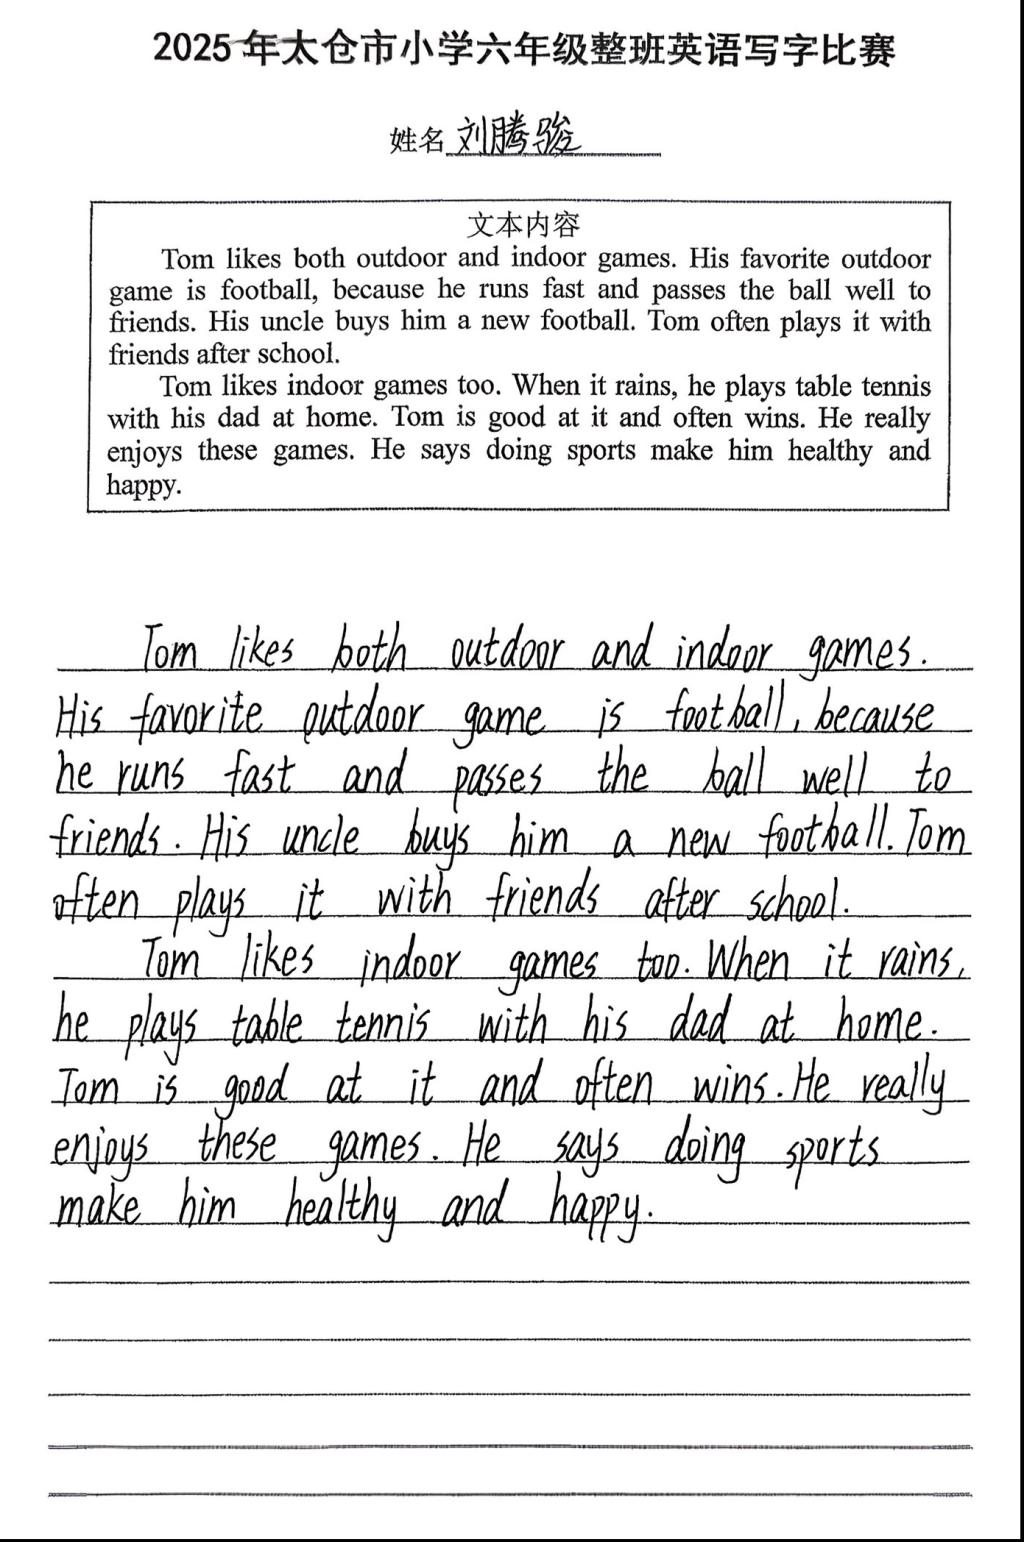 2025年太仓市小学六年级整班英语写字比赛
姓名 刘腾骏
文本内容
Tom likes both outdoor and indoor games. His favorite outdoor
game is football, because he runs fast and passes the ball well to
friends. His uncle buys him a new football. Tom often plays it with
friends after school.
Tom likes indoor games too. When it rains, he plays table tennis
with his dad at home. Tom is good at it and often wins. He really
enjoys these games. He says doing sports make him healthy and
happy.
Tom likes both outdoor and indoor games.
His favorite outdoor game is football, because
he runs fast and passes the ball well to
friends. His uncle buys him a new football. Tom
often plays it with friends after school.
Tom likes indoor games too. When it rains,
he plays table tennis with his dad at home.
Tom is good at it and often wins. He really
enjoys these games. He says doing sports
make him healthy and happy.